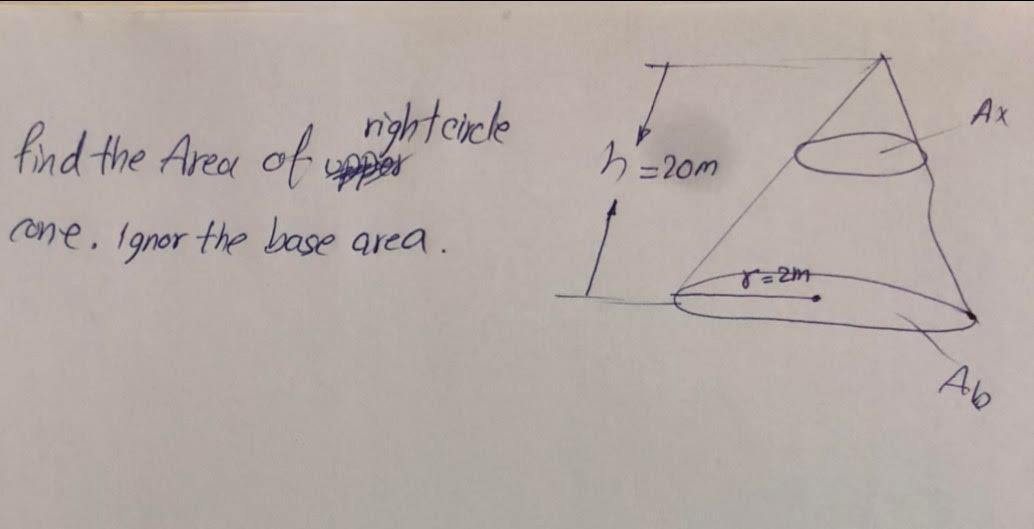 find the Area of right circle
cone. Ignor the base area.
h = 20m
Ax
r = 2m
Ab